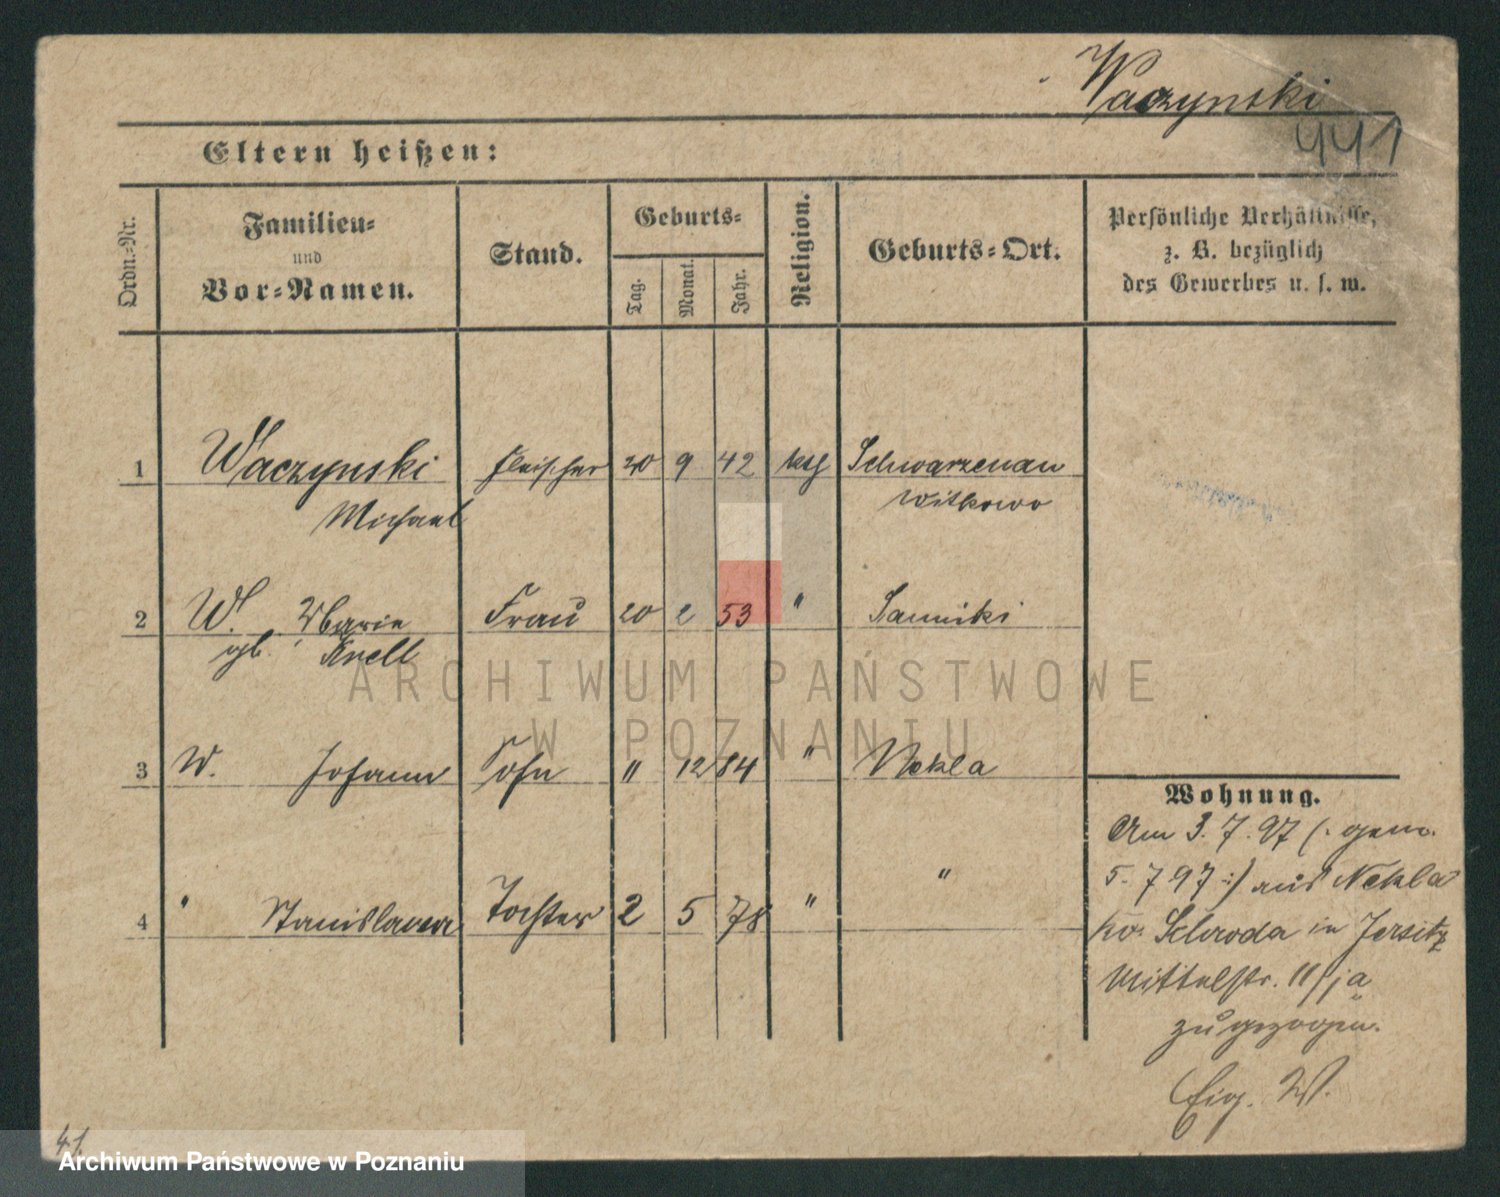 Waczynski
441
Eltern heißen:
Ordn.-Nr.
Familien-
und
Vor-Namen.
Stand.
Geburts-
Tag.
Monat.
Jahr.
Religion.
Geburts-Ort.
Persönliche Verhältnisse,
z. B. bezüglich
des Gewerbes u. s. w.
1 Waczynski Fleischer 20 9 42 kth Schwarzenau
Michael Witkowo
2 W. Marie Frau 20 2 53 " Sanniki
gb. Knell
3 W. Johann Sohn " 12 84 " Nekla
4 " Stanislawa Tochter 2 5 78 " "
Wohnung.
Am 3.7.97 (: gem.
5.7.97 :) aus Nekla
Kr. Schroda in Jersitz
Mittelstr. 11/ja
zugezogen.
Eig. W.
ARCHIWUM PAŃSTWOWE
W POZNANIU
Archiwum Państwowe w Poznaniu